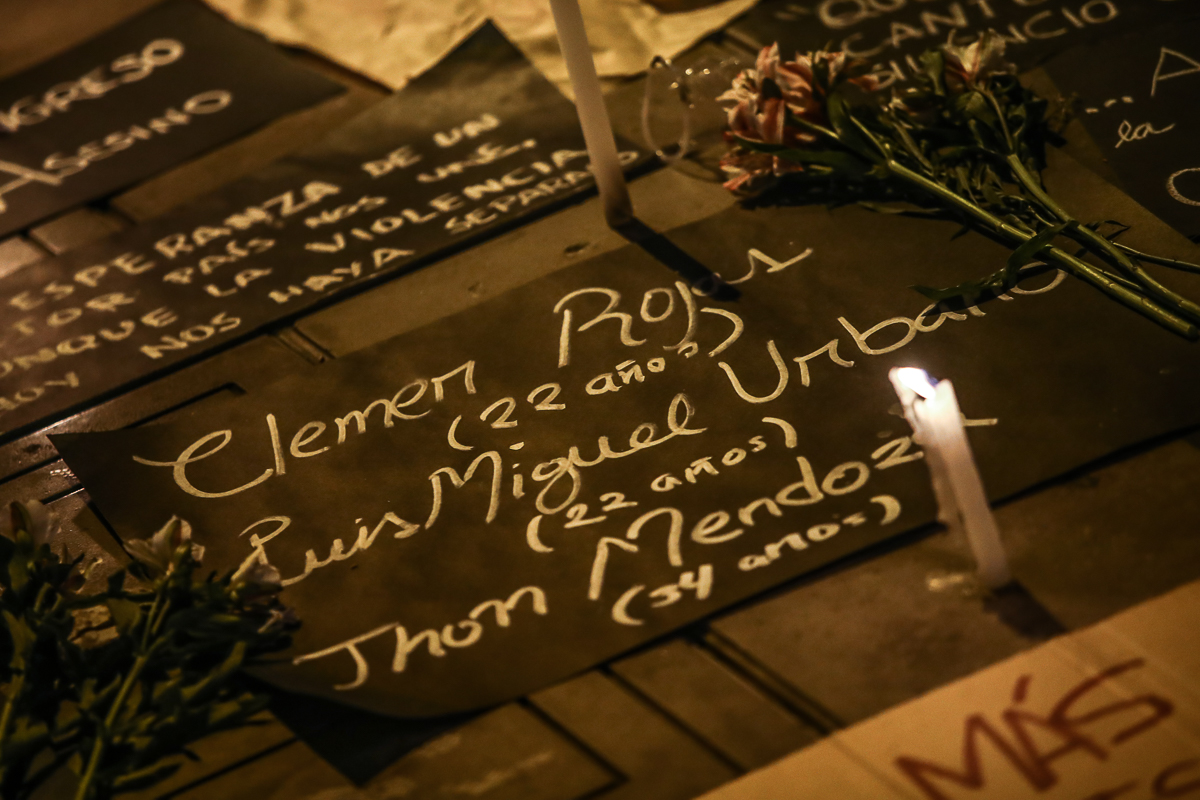 GRESO
ASESINO
ESPERANZA DE UN
TOR PAÍS NOS UNE.
UNQUE LA VIOLENCIA
HOY NOS HAYA SEPARA
Clemer Rojas
(22 años)
Luis Miguel Urbano
(22 años)
Jhon Mendoza
(34 años)
... la
MÁS